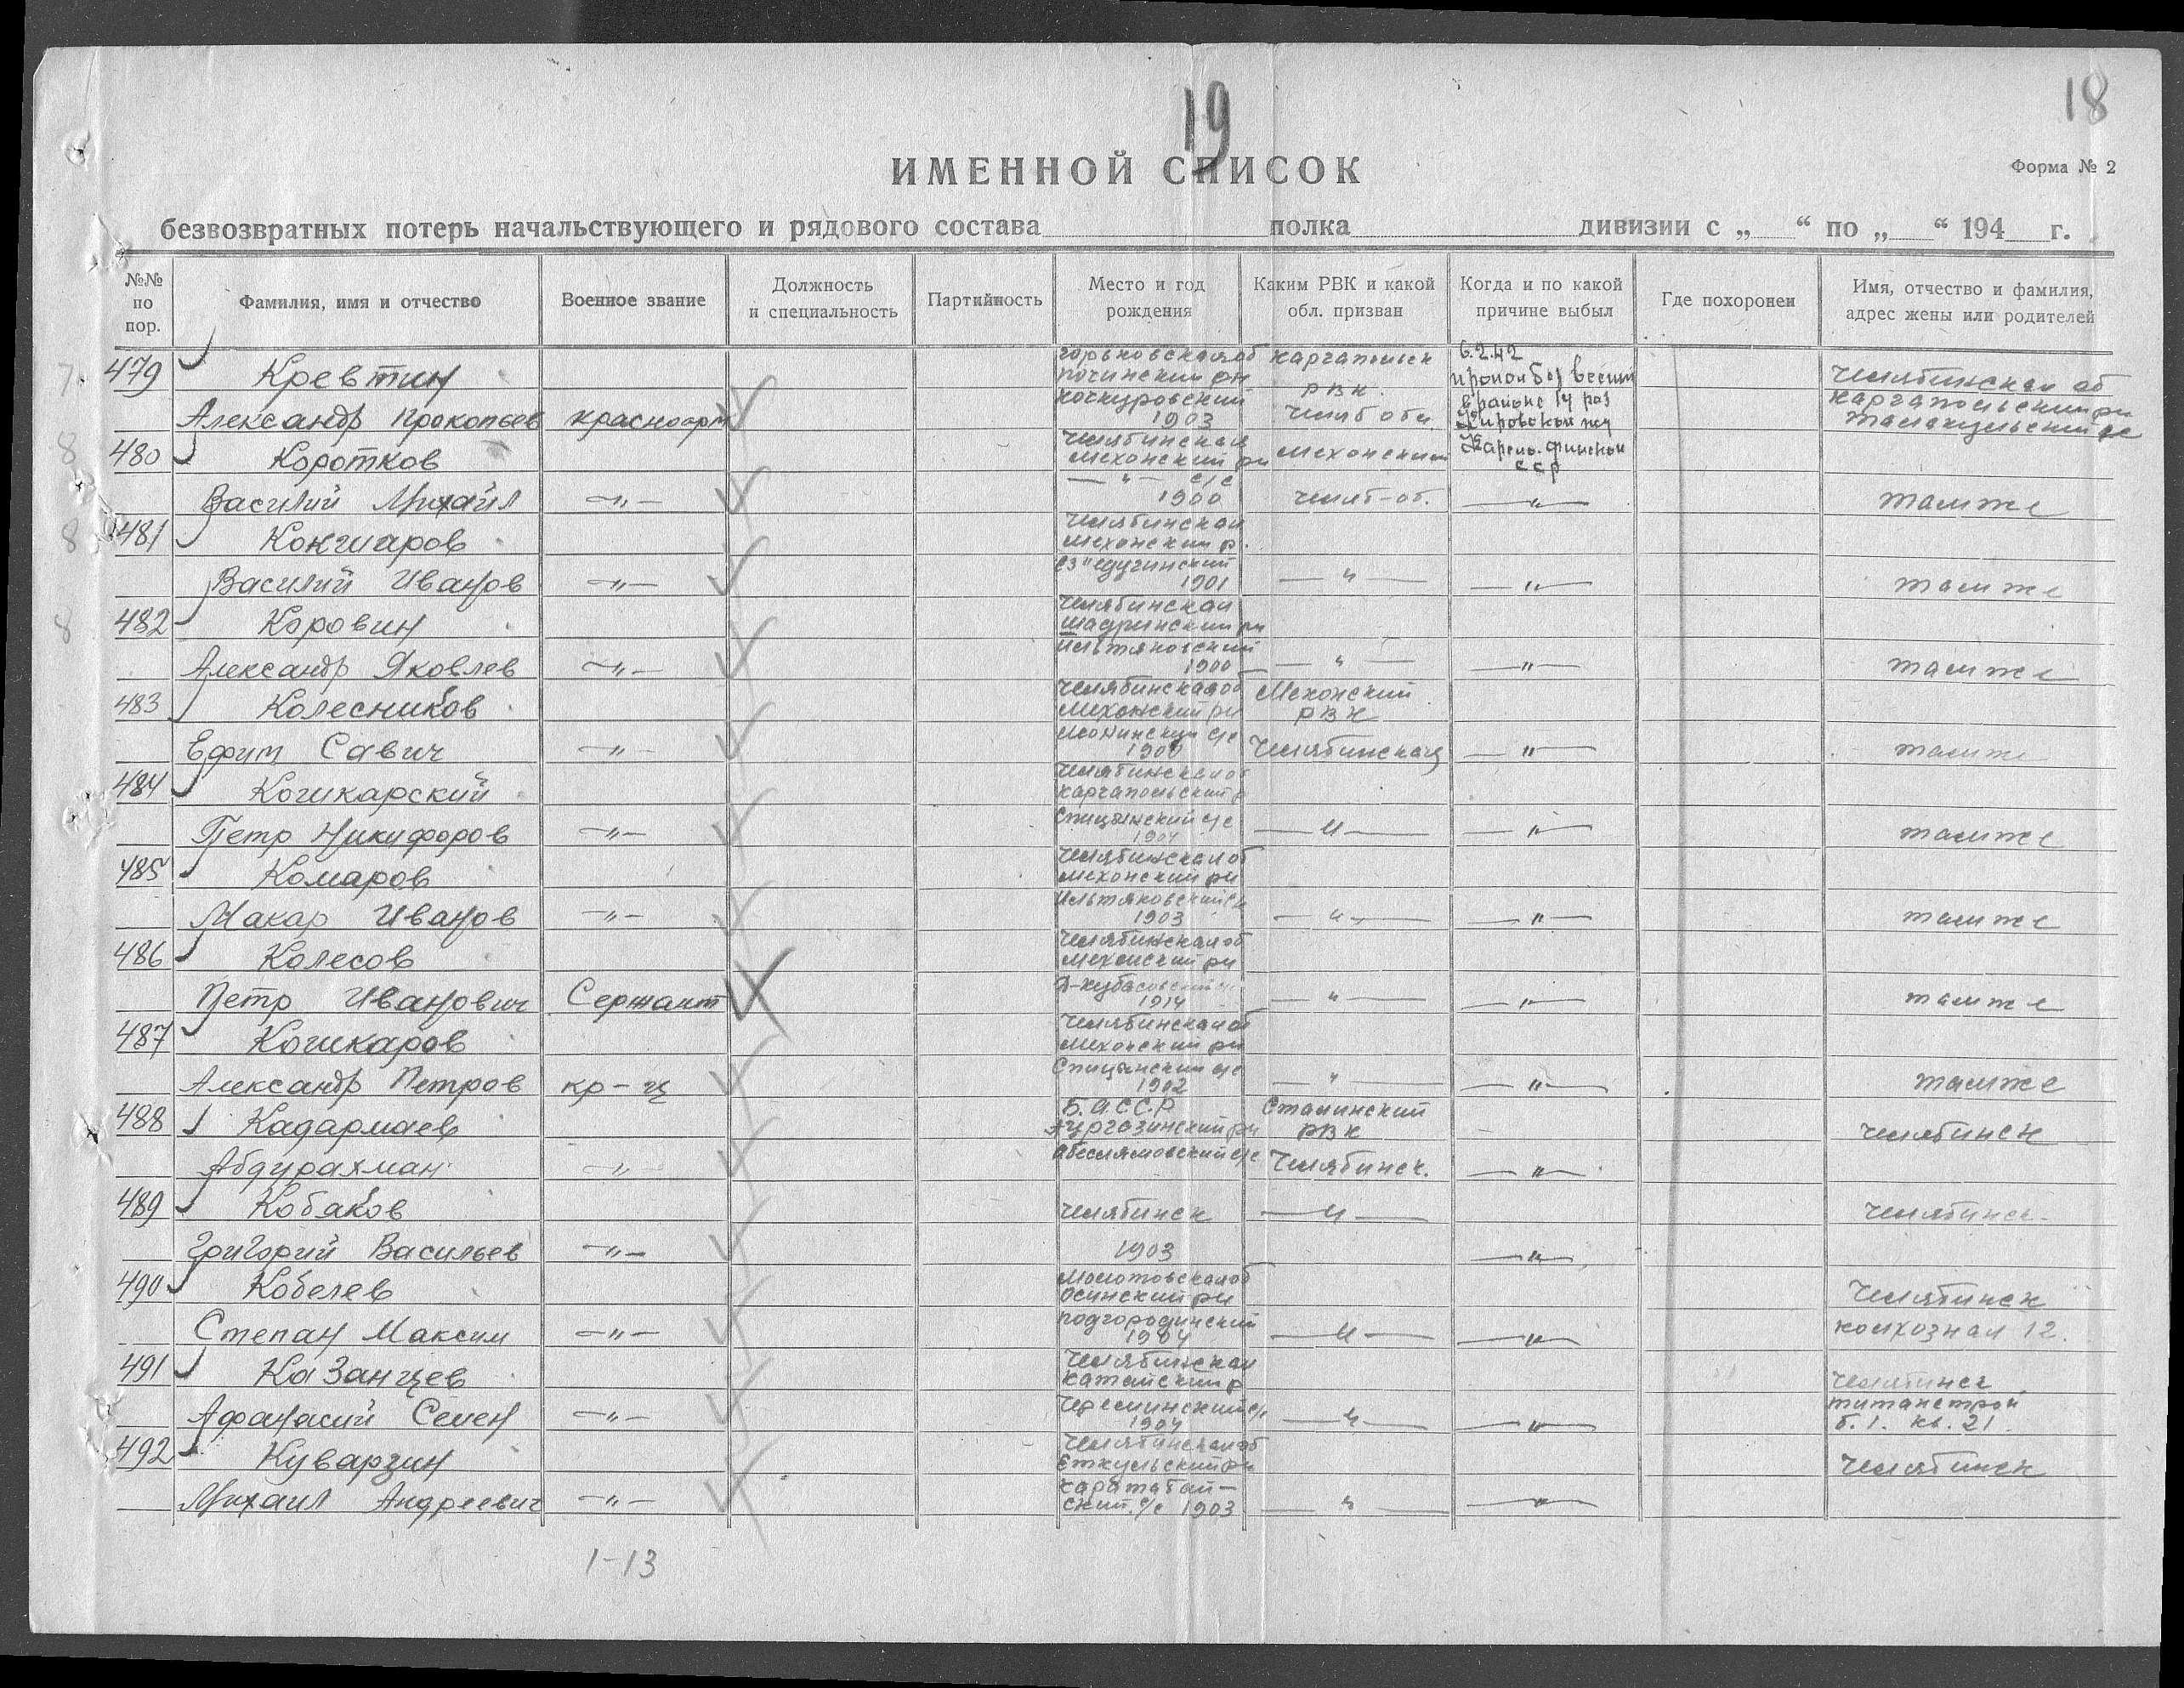 19
18
ИМЕННОЙ СПИСОК
Форма № 2
безвозвратных потерь начальствующего и рядового состава полка дивизии с „ “ по „ “ 194 г.
№№ по пор.
Фамилия, имя и отчество
Военное звание
Должность и специальность
Партийность
Место и год рождения
Каким РВК и какой обл. призван
Когда и по какой причине выбыл
Где похоронен
Имя, отчество и фамилия, адрес жены или родителей
7 479 Кревтин горьковская об каргапольск 6.2.42
починский рн РВК пропол без вести Челябинская об
Александр Прокопьев красноарм 1903 Челяб обл в районе 14 раз каргапольский рн
Кировской жд
8 480 Коротков Челябинская Мехонский рн Мехонский Карело-финской ССР
Василий Михаил —„— —"— с/с 1900 челяб-об. —"— там же
8 481 Кончаров Челябинская Мехонский р.
Василий Иванов —„— 1901 —"— —"— там же
8 482 Коровин Челябинская Шадринский рн
Александр Яковлев —„— 1900 —"— —"— там же
483 Колесников Челябинская об Мехонский рн Мехонский РВК
Ефим Савич —„— 1900 Челябинская —"— там же
484 Кошкарский Челябинская об каргапольский р
Петр Никифоров —„— Спицынский с/с 1904 —"— —"— там же
485 Комаров Челябинская об мехонский рн
Макар Иванов —„— Ильтяковский 1903 —"— —"— там же
486 Колесов Челябинская об мехонский рн
Петр Иванович Сержант 1914 —"— —"— там же
487 Кошкаров Челябинская об Мехонский рн
Александр Петров кр-ц Спицынский с/с 1902 —"— —"— там же
488 Кадармаев Б.АССР Сталинский РВК Челябинск
Абдурахман —„— с/с Челябинск. —"—
489 Кобаков Челябинск —"— Челябинск
Григорий Васильев —„— 1903 —"—
490 Кобелев Молотовская об осинский рн Челябинск
Степан Максим —„— 1904 —"— —"— колхозная 12.
491 Казанцев Челябинская катайский р Челябинск
Афанасий Семен —„— 1904 —"— —"— б. 1. кв. 21
492 Куварзин Челябинская об Еткульский рн Челябинск
Михаил Андреевич —„— каратабан-ский с/с 1903 —"— —"—
1-13